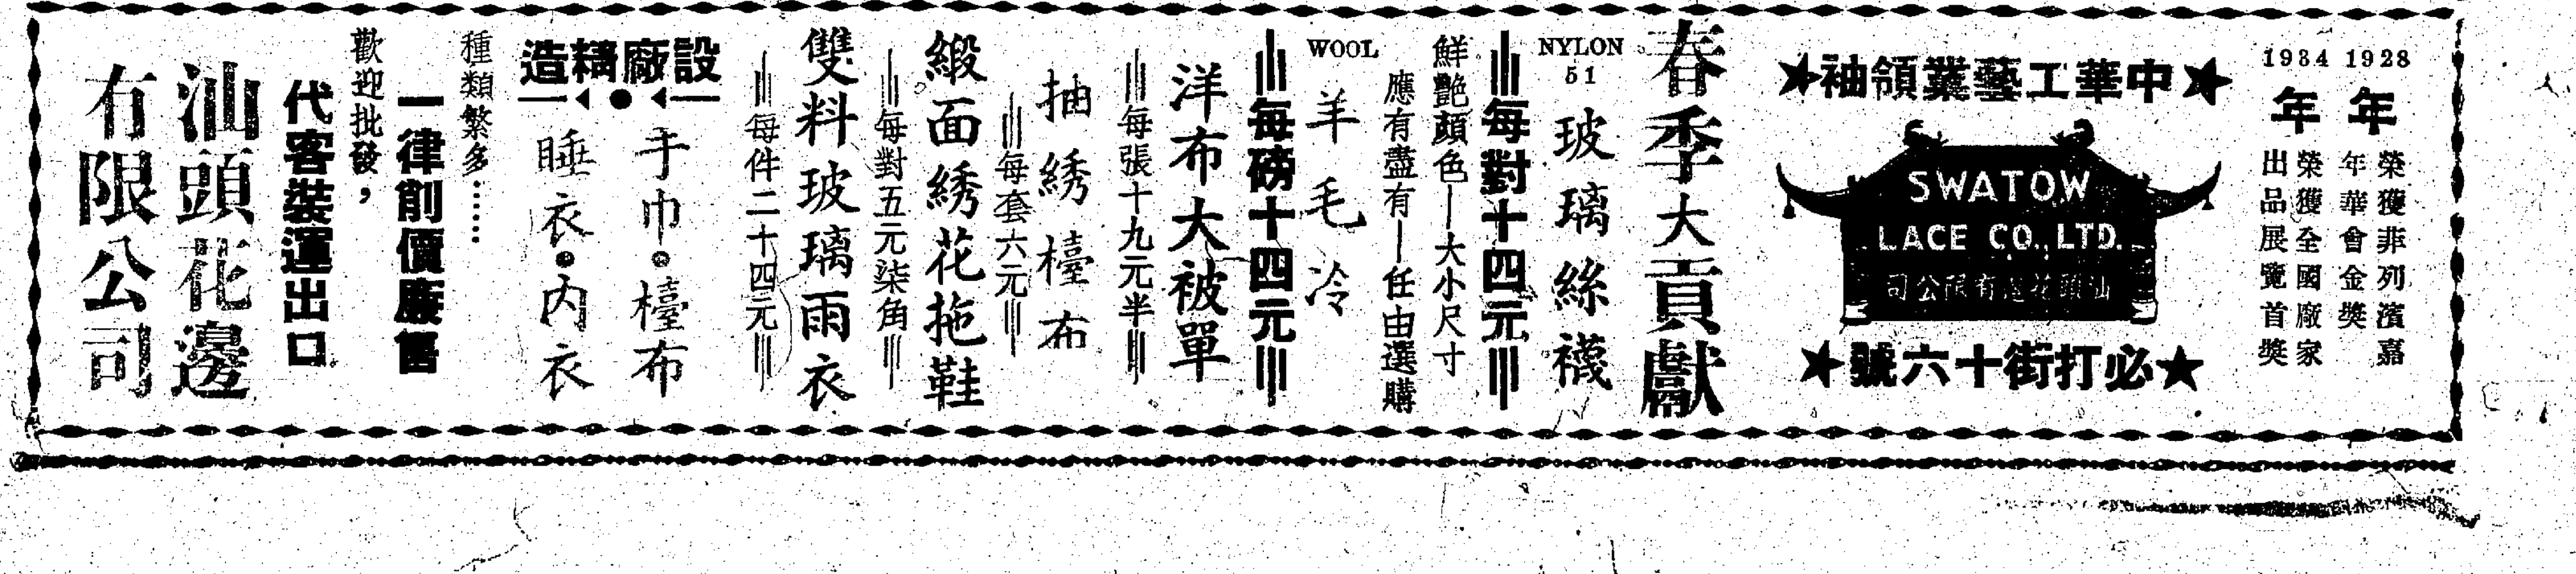 1928年
榮獲菲列濱嘉
年華會金獎
1934年
榮獲全國廠家
出品展覽首獎
★中華工藝業領袖★
SWATOW
LACE CO., LTD.
汕頭花邊有限公司
★必打街十六號★
春季大貢獻
NYLON
51
玻璃絲襪
每對十四元
鮮艷顏色—大小尺寸
應有盡有—任由選購
WOOL
羊毛冷
每磅十四元
洋布大被單
每張十九元半
抽綉檯布
每套六元
緞面綉花拖鞋
每對五元柒角
雙料玻璃雨衣
每件二十四元
設廠精造
手巾。檯布
睡衣。內衣
種類繁多……
一律削價廉售
歡迎批發，
代客裝運出口
汕頭花邊
有限公司